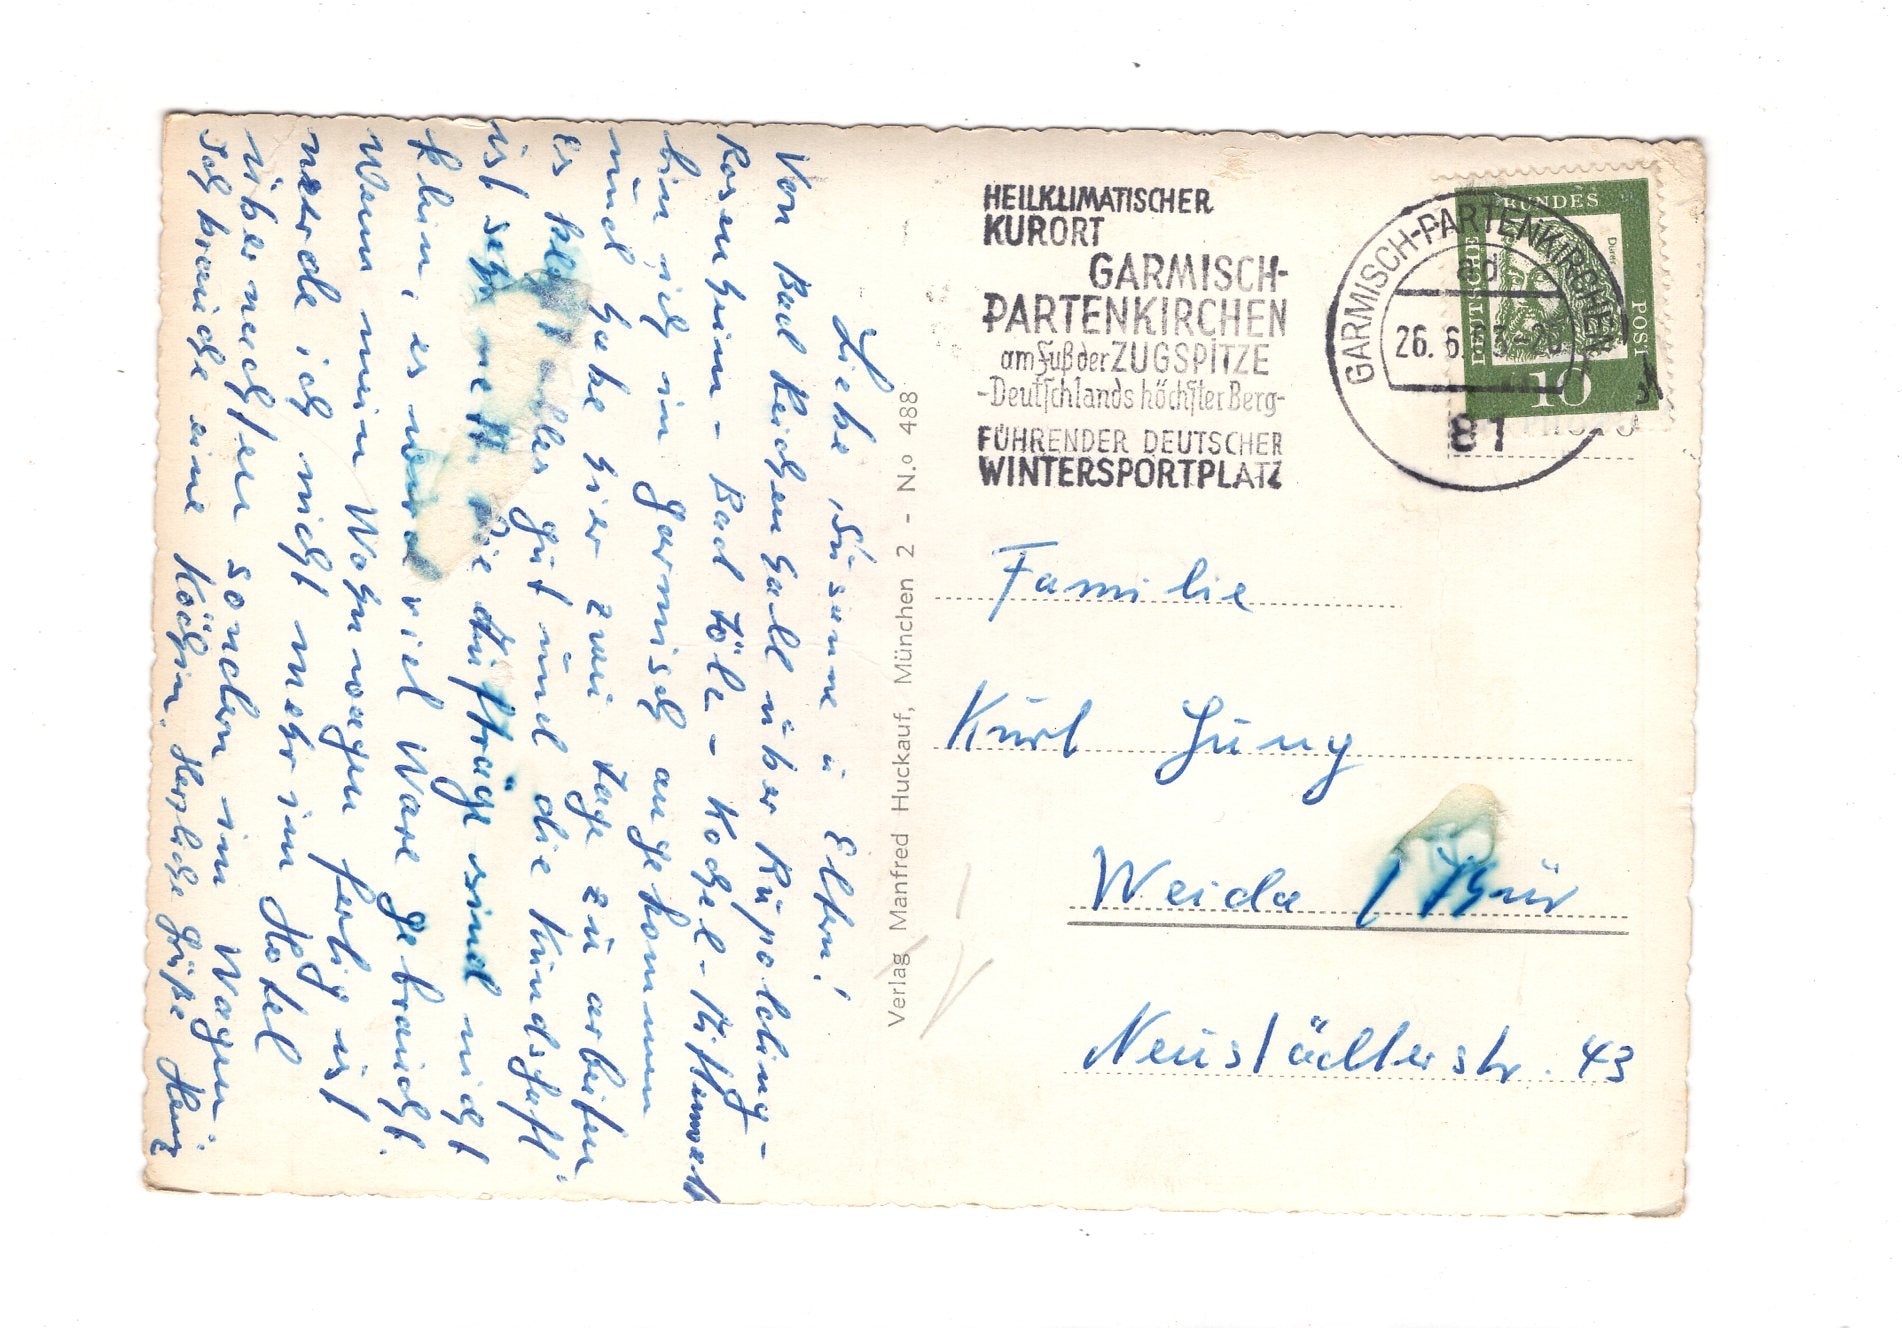 Liebe Susanne u Eltern!
Von Bad Reichenhall über Rupolding -
Rosenheim - Bad Tölz - Kochel - Mittenwald
bin ich in Garmisch angekommen
und habe hier zwei Tage zu arbeiten
Es alles gut und die Kundschaft
ist sehr nett. Die Aufträge sind nicht
klein, es wird viel Ware gebraucht.
Wenn mein Wohnwagen fertig ist
werde ich nicht mehr im Hotel
übernachten sondern im Wagen
Ich brauche eine Köchin. Herzliche Grüße Heinz
Verlag Manfred Huckauf, München 2 - N.o 488
HEILKLIMATISCHER
KURORT
GARMISCH-
PARTENKIRCHEN
am Fuß der ZUGSPITZE
-Deutschlands höchster Berg-
FÜHRENDER DEUTSCHER
WINTERSPORTPLATZ
GARMISCH-PARTENKIRCHEN
ad
26. 6.
81
DEUTSCHE BUNDESPOST
10
Familie
Kurt Jung
Weida / Thür
Neustädterstr. 43